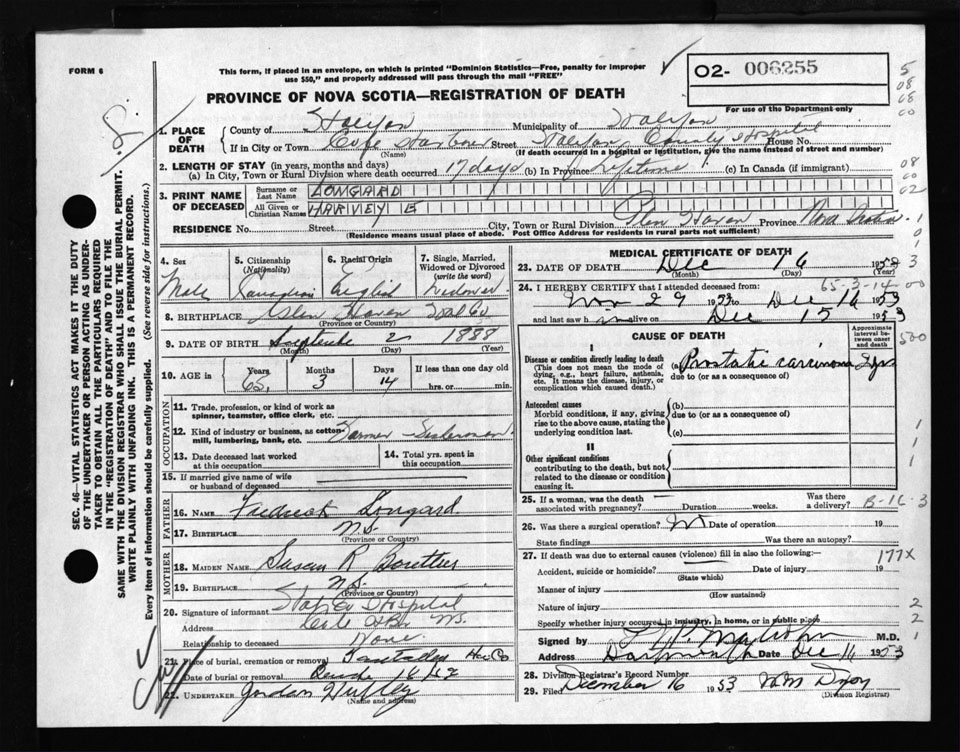 FORM 6
This form, if placed in an envelope, on which is printed "Dominion Statistics—Free, penalty for improper
use $50," and properly addressed will pass through the mail "FREE"
O2- 006255
For use of the Department only
PROVINCE OF NOVA SCOTIA—REGISTRATION OF DEATH
1. PLACE OF DEATH
County of Halifax Municipality of Halifax
If in City or Town Cole Harbour Street Halifax County Hospital House No.
(Name) (If death occurred in a hospital or institution, give the name instead of street and number)
2. LENGTH OF STAY (in years, months and days)
(a) In City, Town or Rural Division where death occurred 17 days (b) In Province Lifetime (c) In Canada (if immigrant)
3. PRINT NAME OF DECEASED
Surname or Last Name LONGARD
All Given or Christian Names HARVEY E
RESIDENCE No. Street City, Town or Rural Division Glen Haven Province Nova Scotia
(Residence means usual place of abode. Post Office Address for residents in rural parts not sufficient)
SEC. 46—VITAL STATISTICS ACT MAKES IT THE DUTY
OF THE UNDERTAKER OR PERSON ACTING AS UNDER-
TAKER TO OBTAIN ALL THE PARTICULARS REQUIRED
IN THE "REGISTRATION OF DEATH" AND TO FILE THE
SAME WITH THE DIVISION REGISTRAR WHO SHALL ISSUE THE BURIAL PERMIT.
WRITE PLAINLY WITH UNFADING INK. THIS IS A PERMANENT RECORD.
Every item of information should be carefully supplied. (See reverse side for instructions.)
4. Sex
Male
5. Citizenship
(Nationality)
Canadian
6. Racial Origin
English
7. Single, Married,
Widowed or Divorced
(write the word)
Widower
8. BIRTHPLACE Glen Haven Hal Co
(Province or Country)
9. DATE OF BIRTH September 2 1888
(Month) (Day) (Year)
10. AGE in Years 65 Months 3 Days 14 If less than one day
hrs. or min.
OCCUPATION
11. Trade, profession, or kind of work as
spinner, teamster, office clerk, etc.
12. Kind of industry or business, as cotton-
mill, lumbering, bank, etc. Farmer Fisherman
13. Date deceased last worked
at this occupation
14. Total yrs. spent in
this occupation
15. If married give name of wife
or husband of deceased
FATHER
16. NAME Fredrick Longard
17. BIRTHPLACE N.S.
(Province or Country)
MOTHER
18. MAIDEN NAME Susan R
19. BIRTHPLACE N.S.
(Province or Country)
20. Signature of informant Hal Co Hospital
Address Cole Hbr NS.
Relationship to deceased None
21. Place of burial, cremation or removal Hal Co
Date of burial or removal
22. UNDERTAKER
(Name and address)
MEDICAL CERTIFICATE OF DEATH
23. DATE OF DEATH Dec 16 1953
(Month) (Day) (Year)
65-3-14-00
24. I HEREBY CERTIFY that I attended deceased from:
Nov 29 1953 to Dec 16 1953
and last saw him alive on Dec 15 1953
CAUSE OF DEATH
Approximate
interval between
onset and death
I
Disease or condition directly leading to death
(This does not mean the mode of
dying, e.g., heart failure, asthenia,
etc. It means the disease, injury, or
complication which caused death.)
(a) Prostatic carcinoma 2 yrs
due to (or as a consequence of)
Antecedent causes
Morbid conditions, if any, giving
rise to the above cause, stating the
underlying condition last.
(b)
due to (or as a consequence of)
(c)
II
Other significant conditions
contributing to the death, but not
related to the disease or condition
causing it.
25. If a woman, was the death
associated with pregnancy? Duration weeks. Was there
a delivery?
B-16-3
26. Was there a surgical operation? No Date of operation 19
State findings Was there an autopsy?
27. If death was due to external causes (violence) fill in also the following:—
177X
Accident, suicide or homicide? Date of injury 19
(State which)
Manner of injury
(How sustained)
Nature of injury
Specify whether injury occurred in industry, in home, or in public place
Signed by M.D.
Address Dartmouth Date Dec 16 1953
28. Division Registrar's Record Number
29. Filed December 16 1953
(Division Registrar)